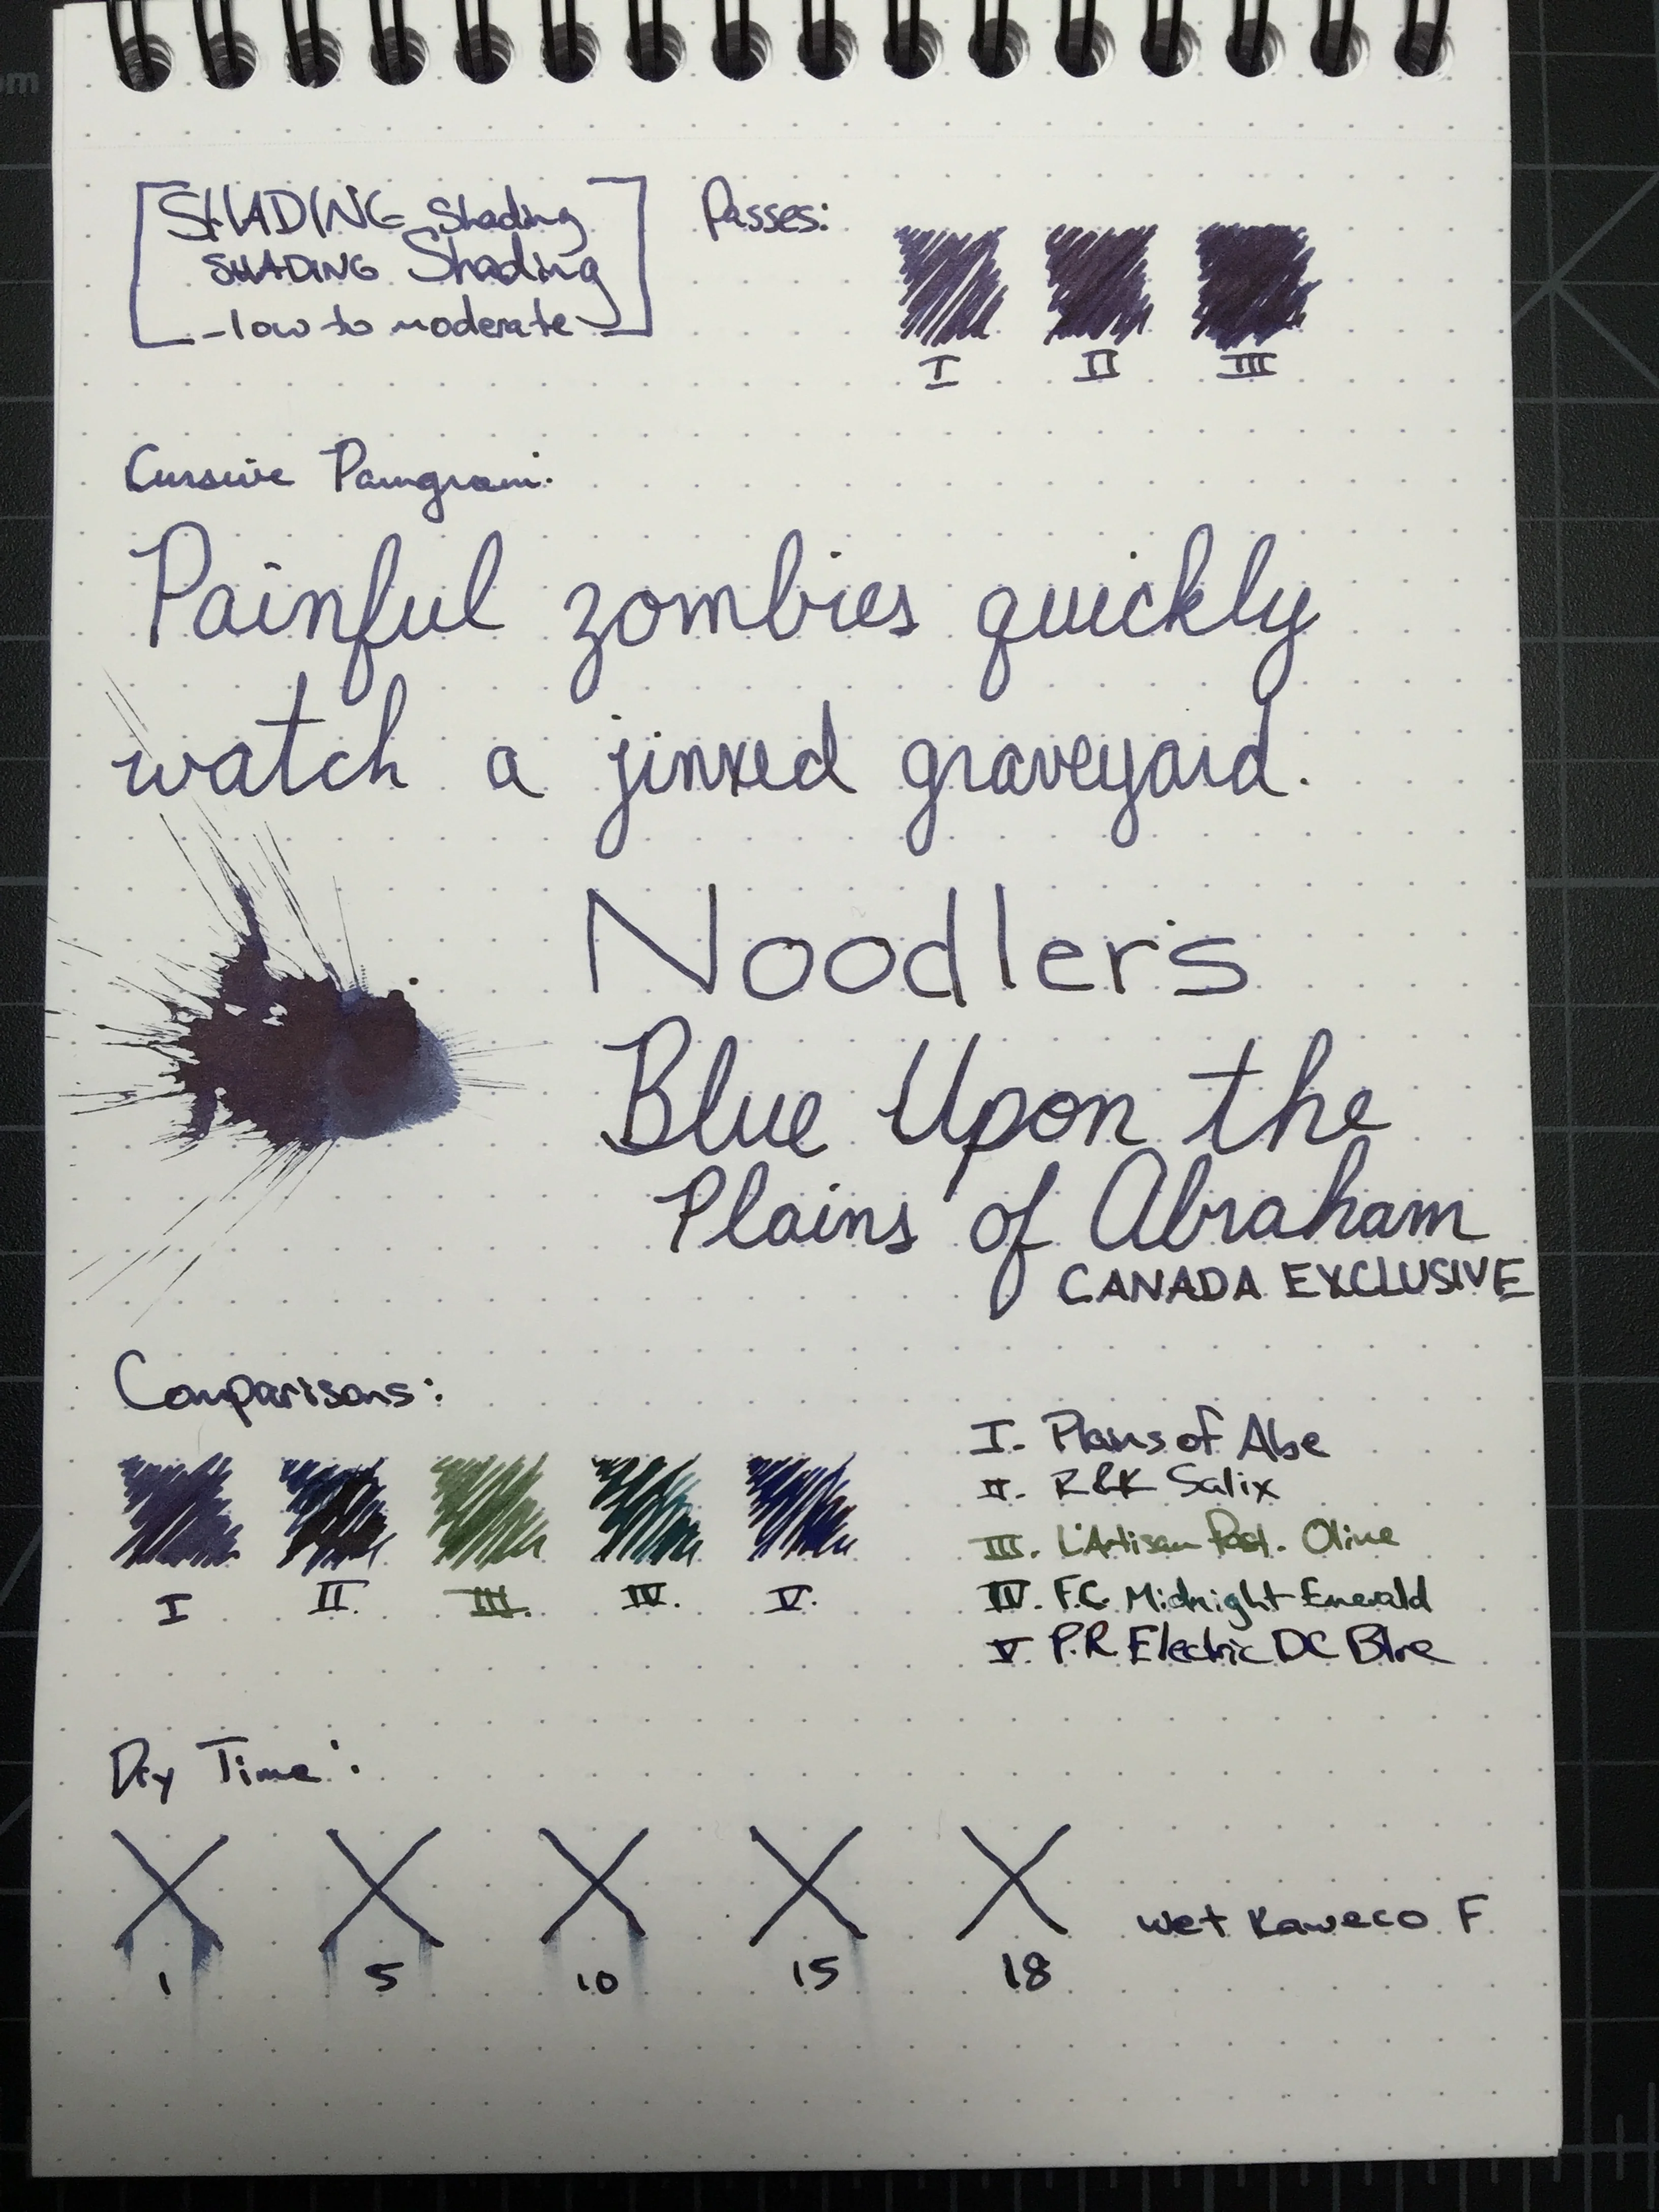 SHADING Shading
SHADING Shading
- low to moderate
Passes:
I II III
Cursive Pangram:
Painful zombies quickly
watch a jinxed graveyard.
Noodler's
Blue Upon the
Plains of Abraham
CANADA EXCLUSIVE
Comparisons:
I II. III. IV. V.
I. Plains of Abe
II. R&K Salix
III. L'Artisan Past. Olive
IV. F.C. Midnight Emerald
V. P.R Electric DC Blue
Dry Time:
1 5 10 15 18
wet Kaweco F